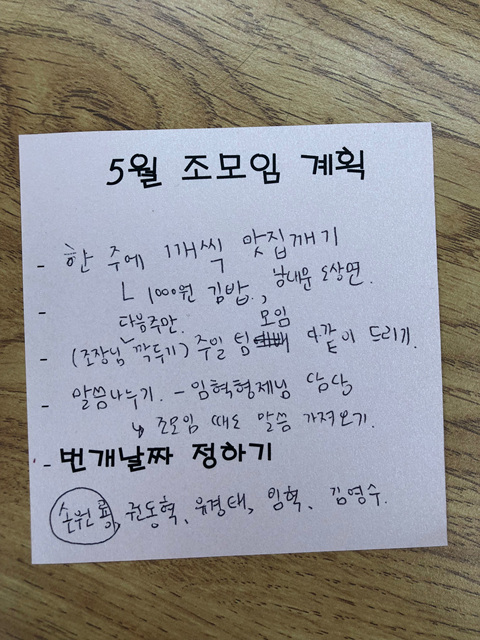 5월 조모임 계획
- 한 주에 1개씩 맛집깨기
ㄴ 1000원 김밥,
-
다음주만. 모임
- (조장님 깍두기) 주일 팀 같이 드리기.
- 말씀나누기. - 임혁형제님 담당
↳ 조모임 때도 말씀 가져오기.
- 번개날짜 정하기
손원룡, 권동혁, 유경태, 임혁, 김영수.